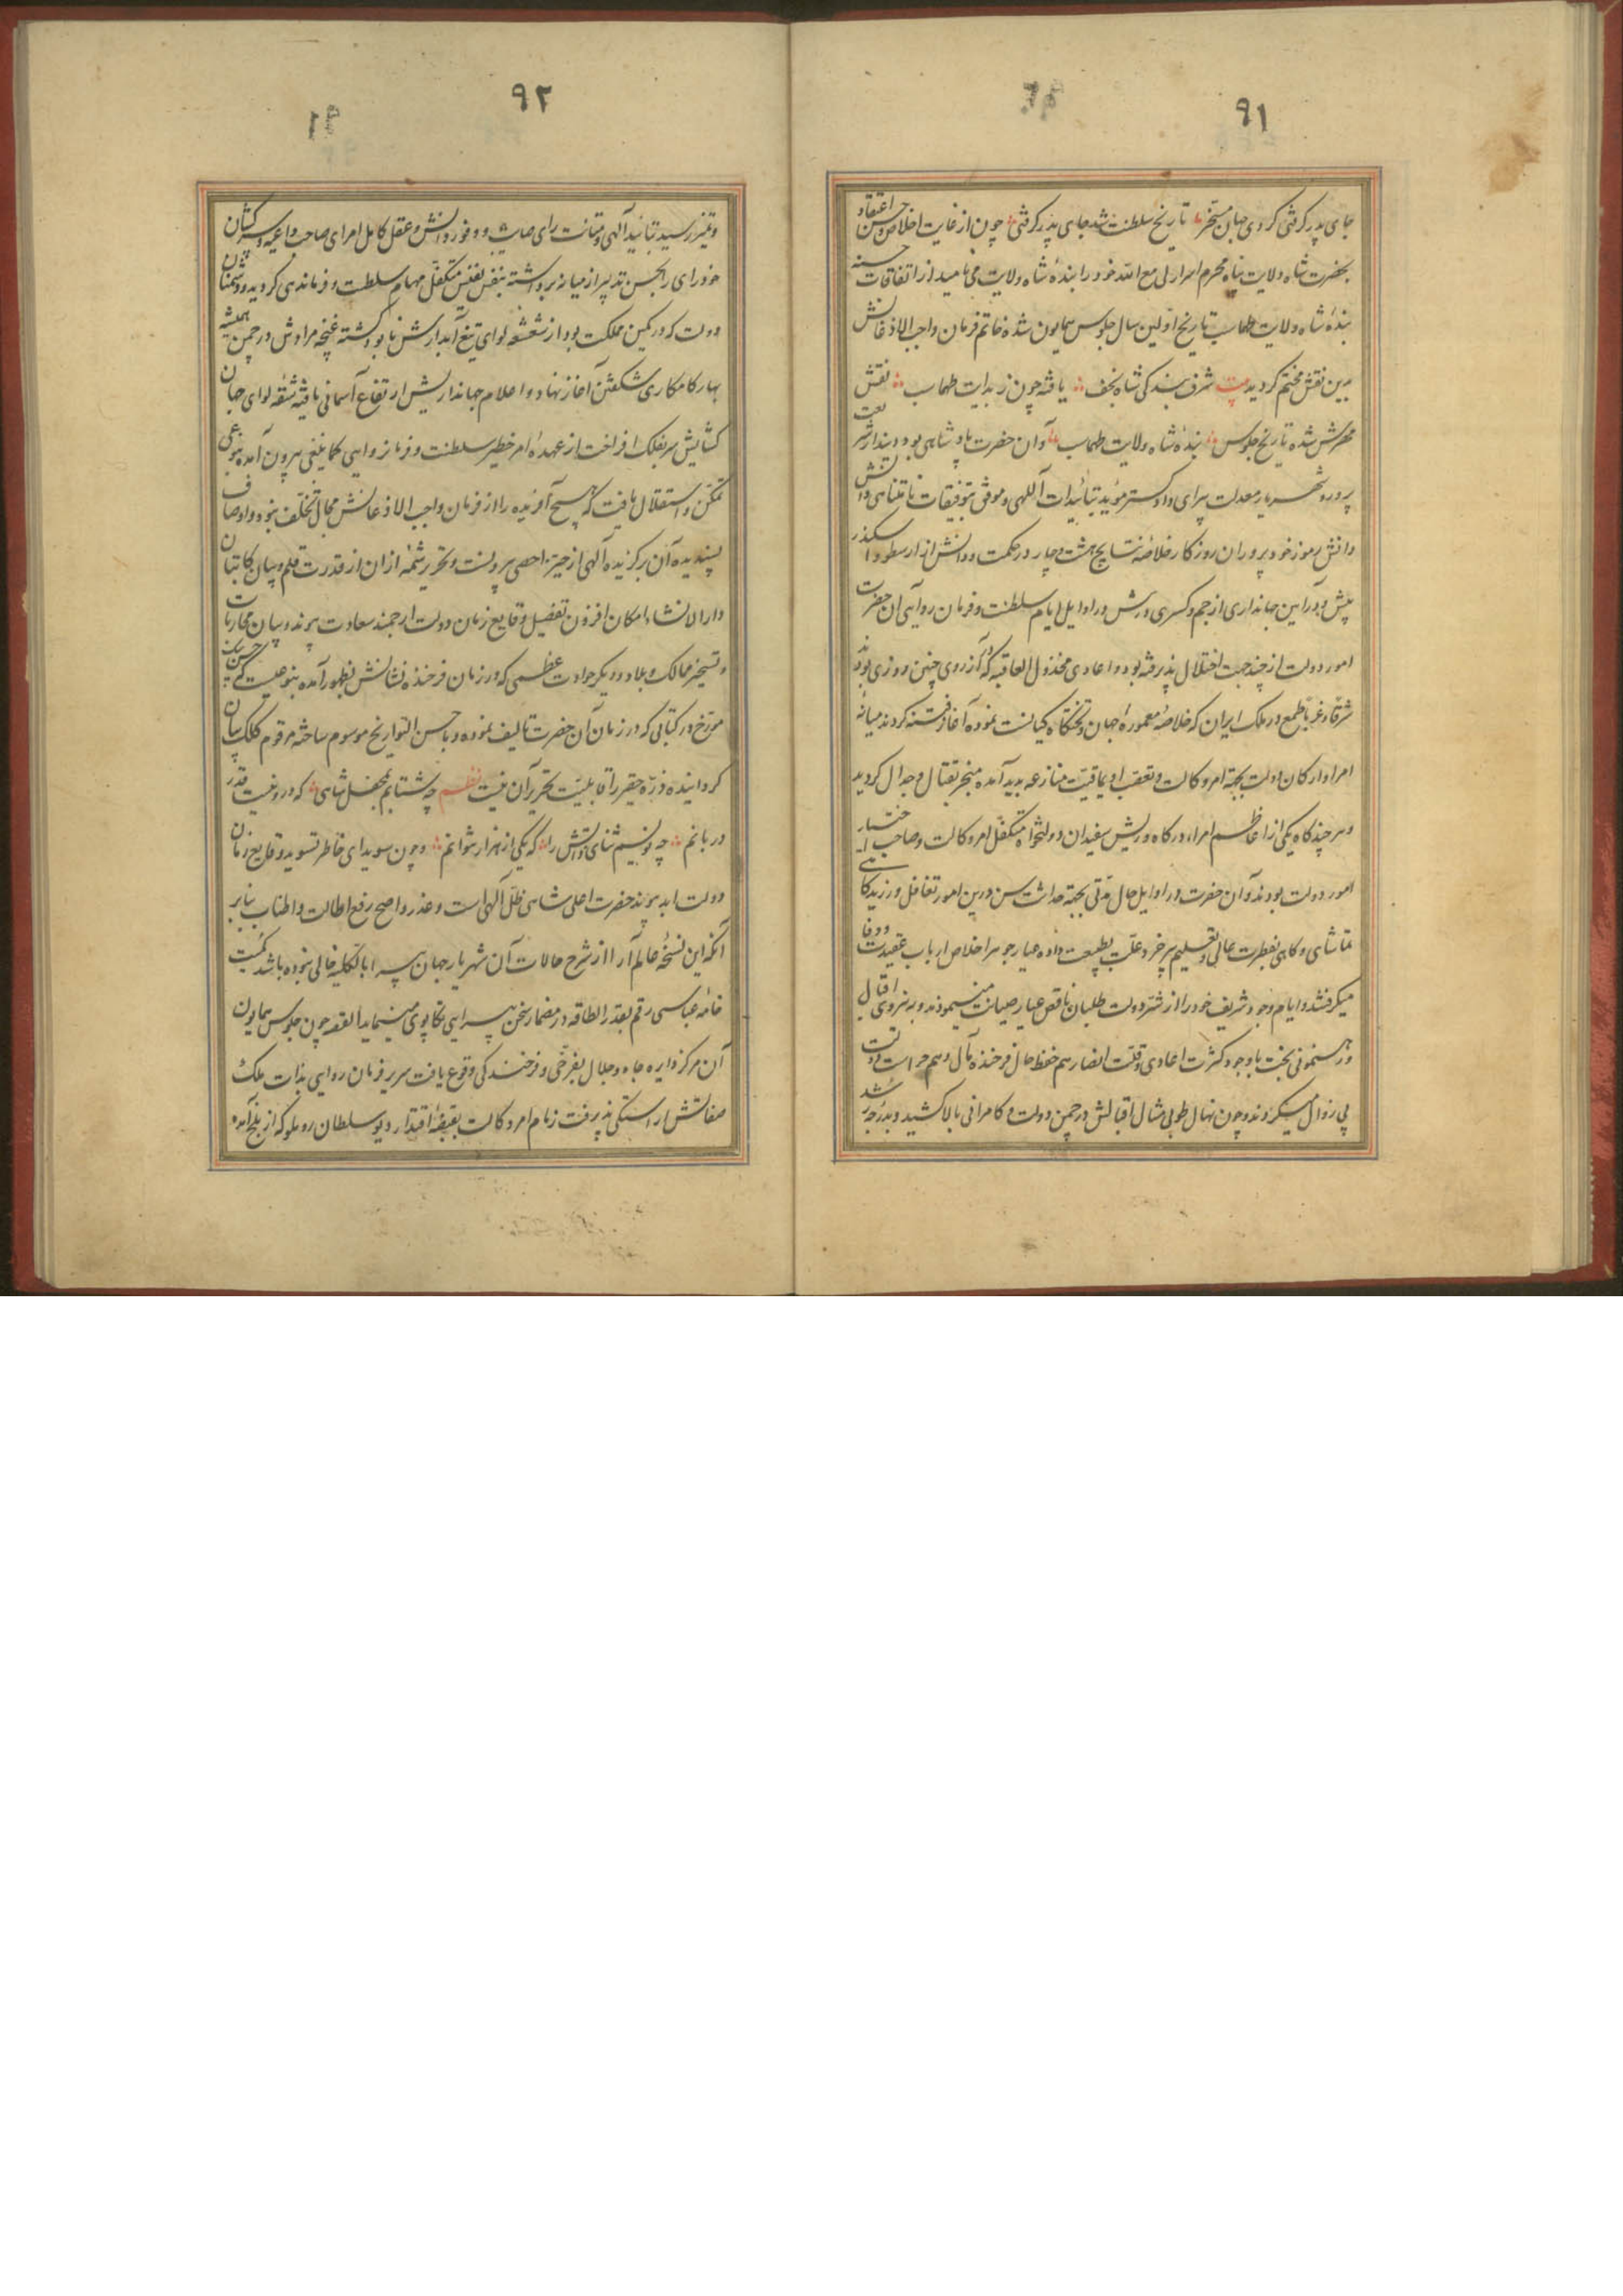 ٩١
جای پدر گرفتی کردی جهان مسخر تاریخ سلطنت شد جای پدر گرفتی چون از غایت اخلاص و حسن اعتقاد
بحضرت شاه ولایت پناه محرم اسرار لی مع الله خود را بندۀ شاه ولایت می نامید از اتفاقات حسنه
بندۀ شاه ولایت طهماسب تاریخ اولین سال جلوس همایون شده خاتم فرمان واجب الاذعانش
بدین نقش مختم گردید بیت شرف بندگی شاه نجف یافته چون ز بدایت طهماسب نقش
مهرش شده تاریخ جلوس بندۀ شاه ولایت طهماسب و آن حضرت پادشاهی بود دیندار شریعت
پرور و شهریار معدلت پیرای دادگستر مؤید بتائیدات آللهی و موفق بتوفیقات نامتناهی دانش
دانش رموز خرد پروران روزگار خلاصۀ نتایج هشت و چار در حکمت و دانش از ارسطو و اسکندر
بیش و در آیین جهانداری از جم و کسری در پیش در اوایل ایام سلطنت و فرمان روایی آن حضرت
امور دولت از چند جهت اختلال پذیرفته بود و اعادی مخذول العاقبه که در آرزوی چنین روزی بودند
شرقا و غربا طمع در ملک ایران که خلاصۀ معمورۀ جهان و تختگاه کیانست نموده آغاز فتنه کردند میانۀ
امرا و ارکان دولت بجهة امر وکالت و تعصب اویماقیت منازعه بدید آمده منجر بقتال و جدال گردید
و هر چند گاه یکی از اعاظم امراء درگاه و ریش سفیدان دولتخواه متکفل امر وکالت و صاحب اختیار
امور دولت بودند و آن حضرت در اوایل حال مدتی بجهة حداثت سن درین امور تغافل ورزید گاهی
بتماشای و گاهی بفطرت عالی و تعلیم پیر خرد علت بطبیعت داده عیار جوهر اخلاص ارباب عقیدت و وفا
میگرفتند و ایام وجود شریف خود را از شر دولت طلبان ناقص عیار صیانت مینمودند و به نیروی اقبال
و رهنمونی بخت با وجود کثرت اعادی و قلت انصار هم حفظ حال فرخنده مآل و هم حراست دولت
بی زوال میکردند و چون نهال طوبی مثال اقبالش در چمن دولت و کامرانی بالا کشید و بدرجۀ رشد
٩٢
و تمیز رسید بتائید آلهی و متانت رای صائب و وفور دانش و عقل کامل امرای صاحب داعیه و سرکشان
خودرای را بحسن تدبیر از میانه برداشته بنفس نفیس متکفل مهام سلطنت و فرماندهی گردید و دشمنان
دولت که در کمین مملکت بود از شعشعه لوای تیغ آبدارش نابود گشته غنچه مرادش در چمن همیشه
بهار کامکاری شکفتن آغاز نهاد و اعلام جهانداریش ارتفاع آسمانی یافته شقۀ لوای جهان
گشایش سر بفلک افراخت از عهدۀ امر خطیر سلطنت و فرمانروایی کما ینبغی بیرون آمده بنوعی
تمکن و استقلال یافت که هیچ آفریده را از فرمان واجب الاذعانش مجال تخلف نبود و اوصاف
پسندیده آن برگزیده آلهی از حیز احصی بیرونست و تحریر شمۀ ازان از قدرت قلم و بیان کاتبان
دارالانشاء امکان افزون تفصیل وقایع زمان دولت ارجمند سعادت پیوند و بیان محاربات
و تسخیر ممالک و بلاد و دیگر حوادث عظمی که در زمان فرخنده نشانش بظهور آمده بنوعیست که حسن بیک
مورخ در کتابی که در زمان آن حضرت تالیف نموده و باحسن التواریخ موسوم ساخته مرقوم کلک بیان
گردانیده ذرۀ حقیر را قابلیت تحریر آن نیست نظم چه شتابم بمحفل شاهی که درو نیست قدر
دربانم چه نویسم ثنای ذاتش را که یکی از هزار نتوانم و چون سویدای خاطر تسوید وقایع زمان
دولت ابد پیوند حضرت اعلی شاهی ظل آلهی است و عذر واضح رفع اطالت و اطناب بنابر
آنکه این نسخۀ عالم آرا از شرح حالات آن شهریار جهان پیرا بالکلیه خالی نبوده باشد کمیت
خامۀ عباسی رقم بقدر الطاقه در مضمار سخن پیرایی تکاپوی مینماید القصه چون جلوس همایون
آن مرکز دایره جاه و جلال بفرخی و فرخندگی وقوع یافت سریر فرمان روایی بذات ملک
صفاتش آراستگی پذیرفت زمام امر وکالت بقبضۀ اقتدار دیو سلطان روملو که از بلخ آمده